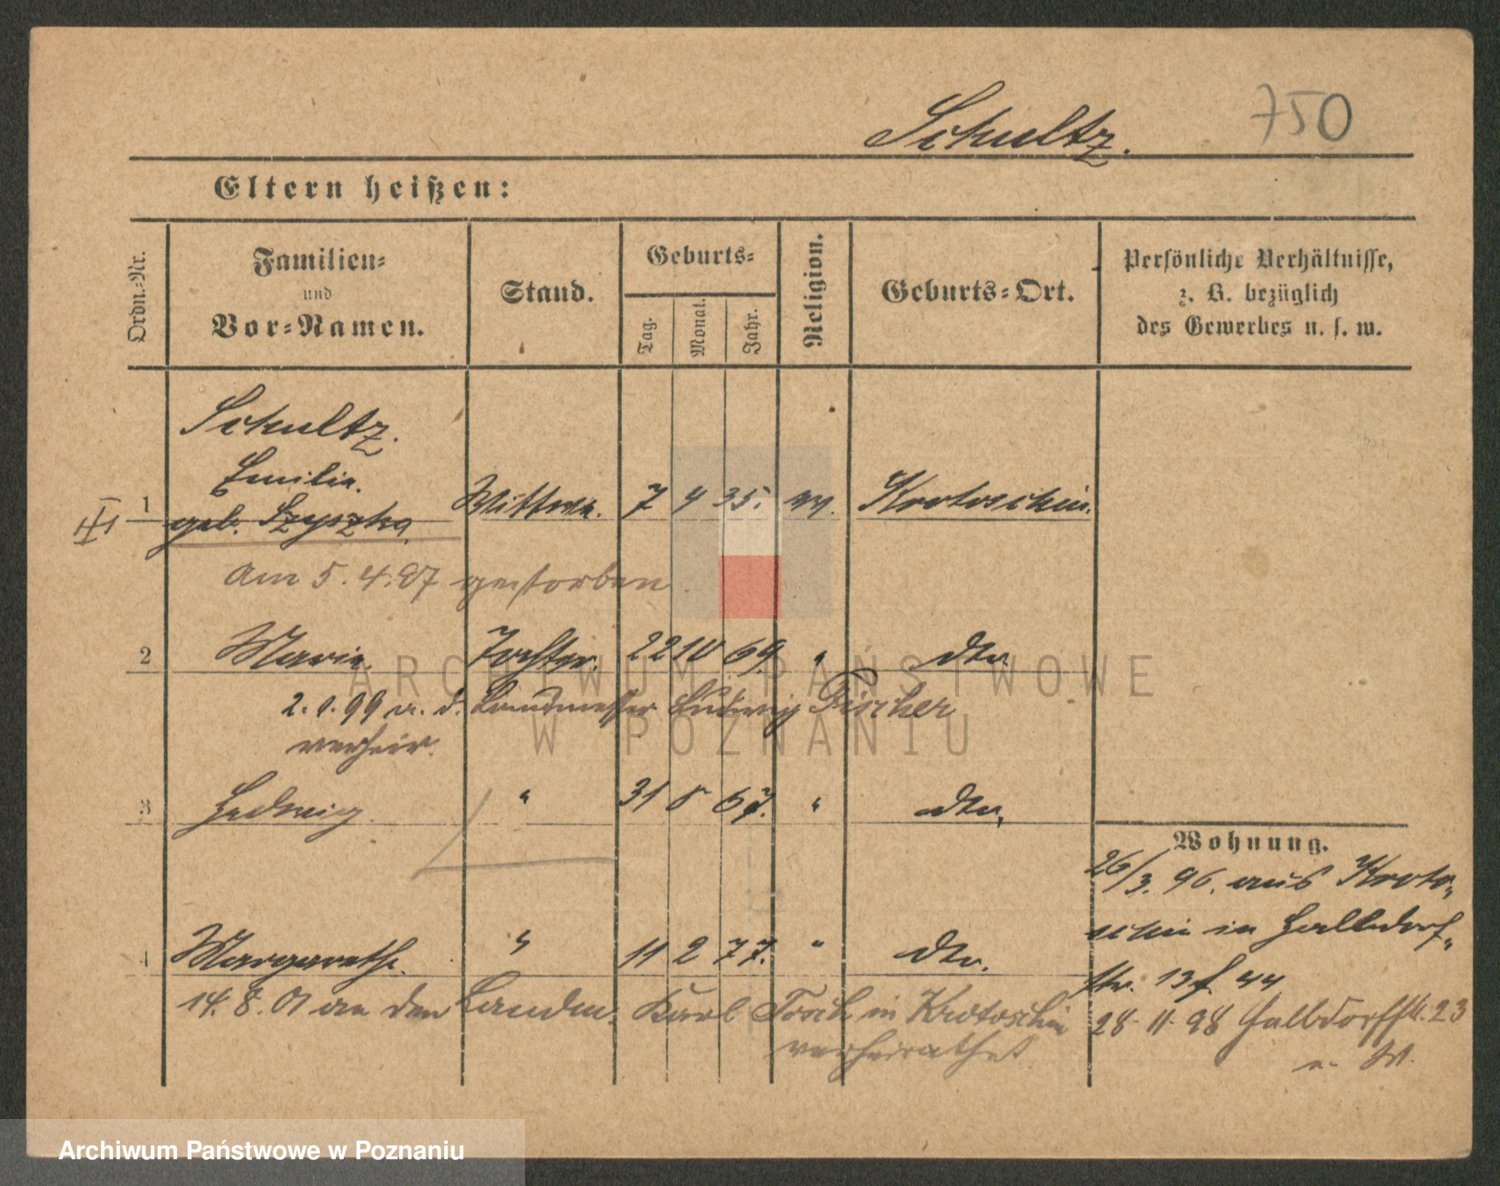 Schultz.
750
Eltern heißen:
Ordn.-Nr.
Familien-
und
Vor-Namen.
Stand.
Geburts-
Tag.
Monat.
Jahr.
Religion.
Geburts-Ort.
Persönliche Verhältnisse,
z. B. bezüglich
des Gewerbes u. s. w.
Schultz.
Emilie.
1 geb. Szyszka Wittwe. 7 4 35. Krotoschin.
am 5.4.87 gestorben
2 Marie. Tochter. 22 10 69. " dto.
2.1.99 a. d. Landmesser Ludwig Fischer
verheir.
3 Hedwig. " 31 8 67. " dto.
Wohnung.
26/3. 96. aus Kroto-
schin in Halbdorf-
4 Margarethe. " 11 2 77. " dto.
str. 13 f. 44
14.8.01 an den Karl in Krotoschin
verheirathet
28 11. 98 Halbdorffstr. 23
ARCHIWUM PAŃSTWOWE
W POZNANIU
Archiwum Państwowe w Poznaniu